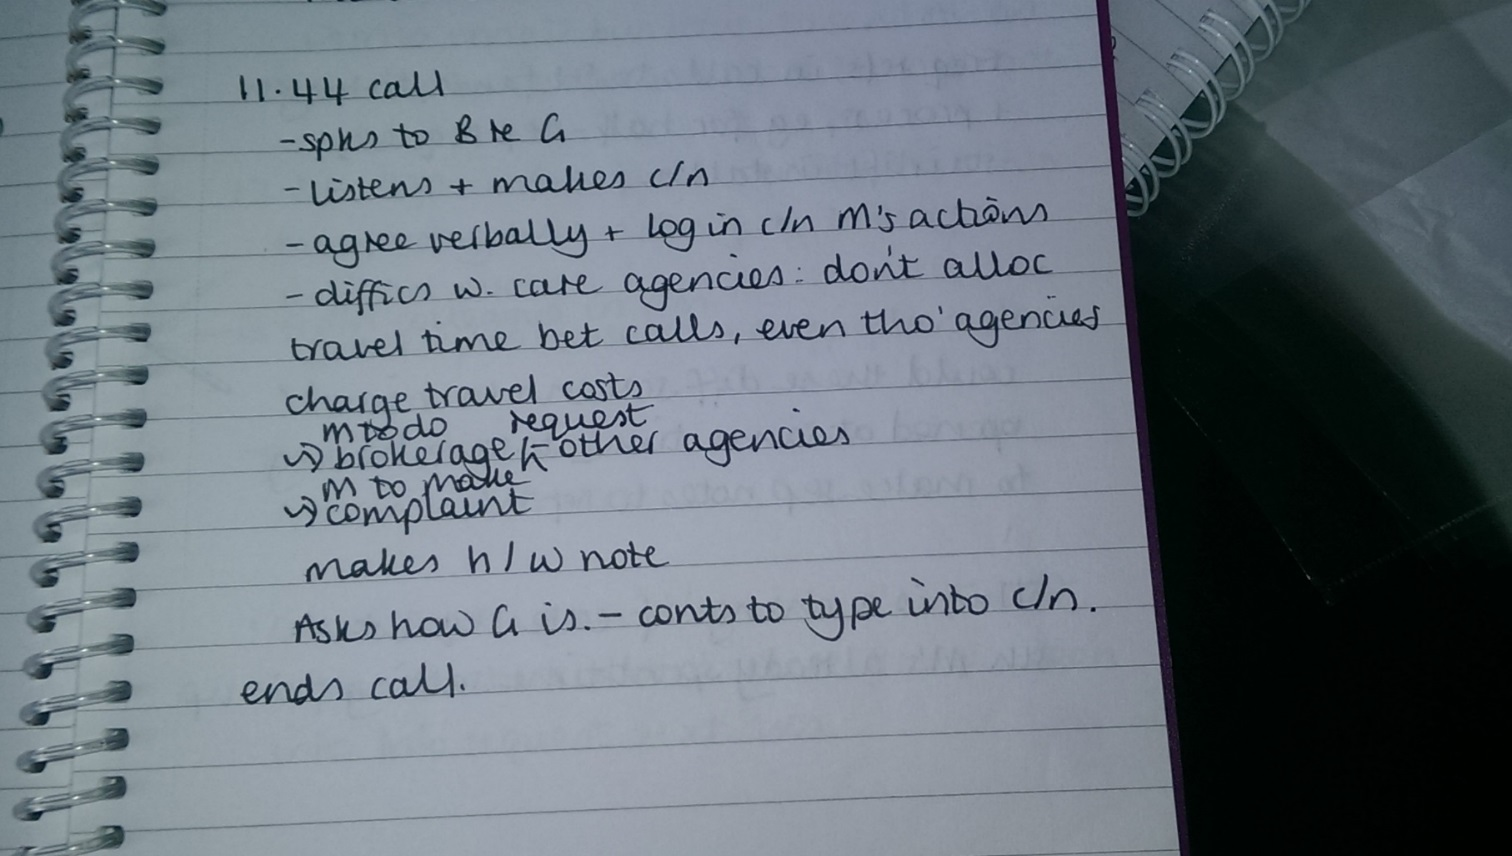 11.44 call
- spks to B re G
- listens + makes c/n
- agree verbally + log in c/n M's actions
- diffics w. care agencies: don't alloc
travel time bet calls, even tho' agencies
charge travel costs
m to do request
↳ brokerage ^ - other agencies
m to make
↳ complaint
makes h/w note
Asks how G is. - conts to type into c/n.
ends call.